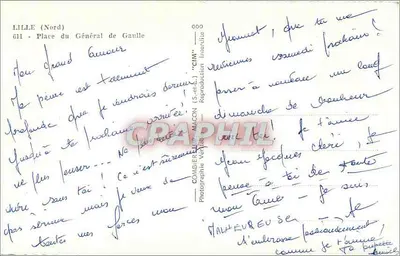 LILLE (Nord)
611 - Place du Général de Gaulle
Mon grand amour
Ma peine est tellement
profonde que je voudrais dormir
jusqu'à ta prochaine arrivée!
ne plus penser... Ne
sans toi! Ce n'est sûrement
pas sérieux mais je veux de
toutes mes forces mon
000
COMBIER IMP. MACON (S.-et-L.) "CIM"
Photographie Reproduction Interdite
CARTHAPHIL
que tu me
samedi prochain!
passer à nouveau un
dimanche de bonheur
Je t'aime
Jean Jacques chéri, je
pense à toi de toute
mon âme - Je suis
MALHEUREUSE - Je
t'embrasse passionnément
comme je t'aime!